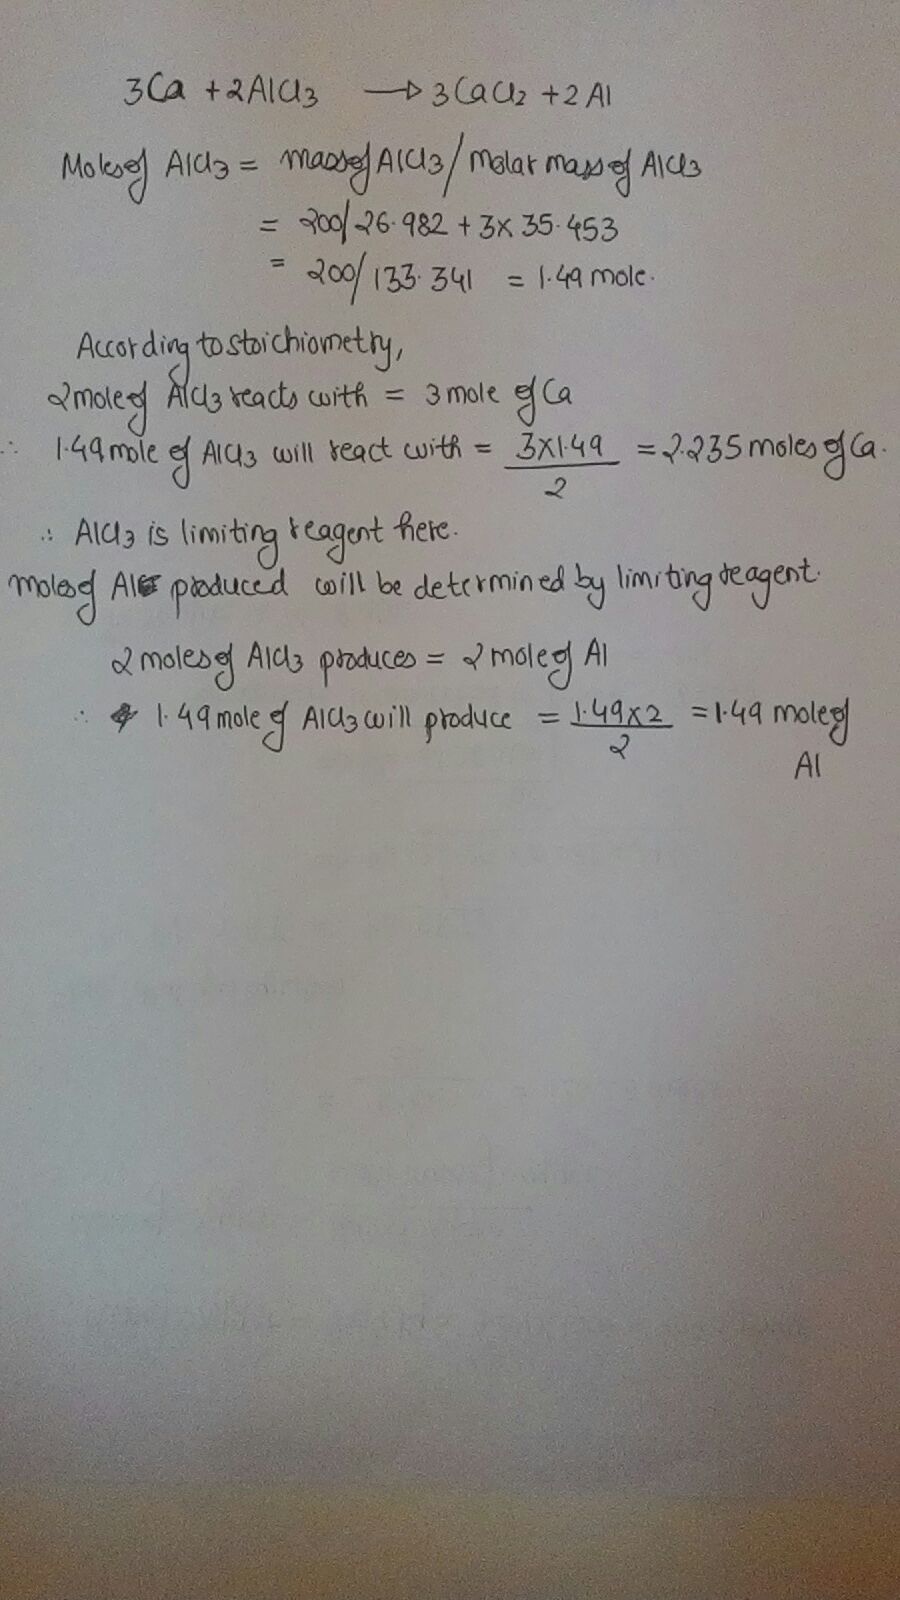 3Ca + 2AlCl3 → 3CaCl2 + 2Al
Moles of AlCl3 = mass of AlCl3 / Molar mass of AlCl3
= 200/26.982 + 3x 35.453
= 200/133.341 = 1.49 mole.
According to stoichiometry,
2 mole of AlCl3 reacts with = 3 mole of Ca
∴ 1.49 mole of AlCl3 will react with = 3X1.49/2 = 2.235 moles of Ca.
∴ AlCl3 is limiting reagent here.
Moles of Al produced will be determined by limiting reagent.
2 moles of AlCl3 produces = 2 mole of Al
∴ 1.49 mole of AlCl3 will produce = 1.49x2/2 = 1.49 mole of
Al